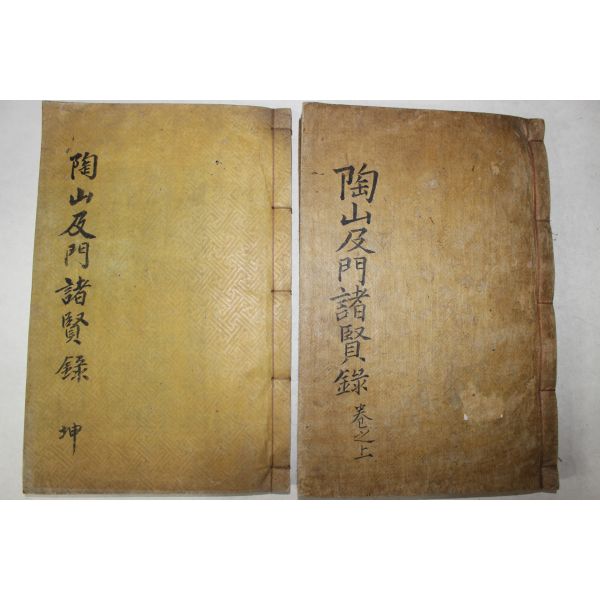 陶山及門諸賢錄 坤
陶山及門諸賢錄 卷之上